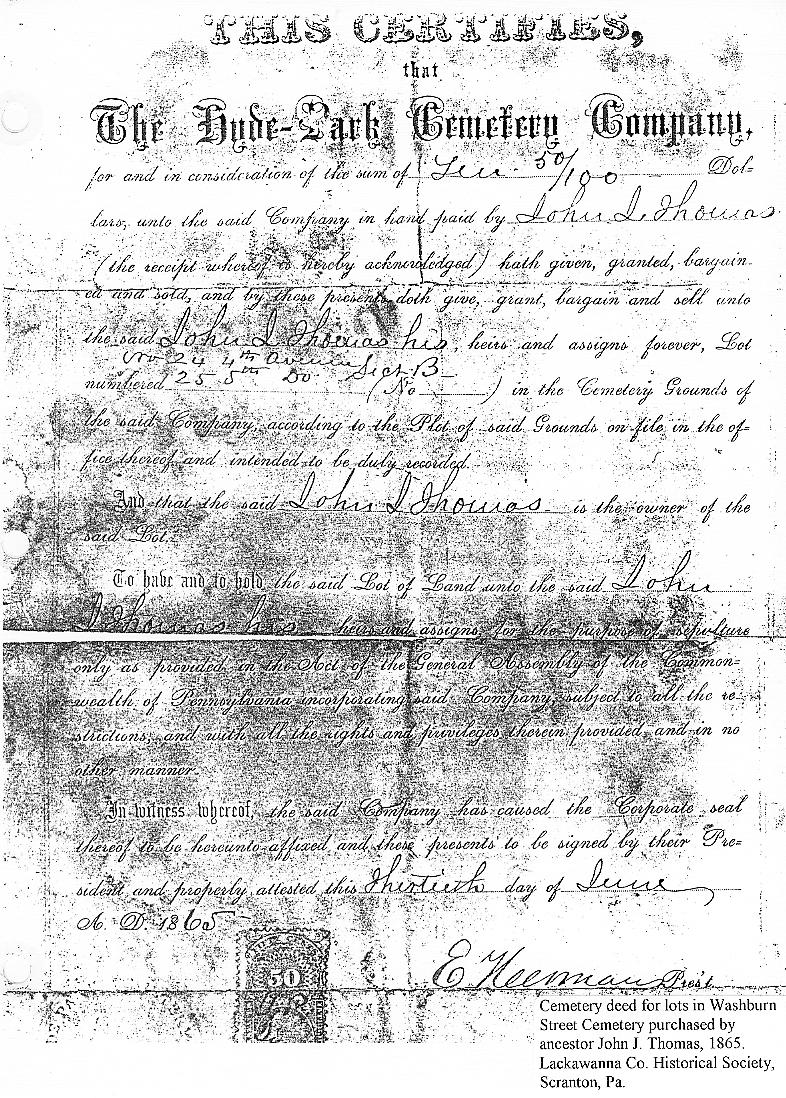 THIS CERTIFIES,
that
The Hyde-Park Cemetery Company,
for and in consideration of the sum of Ten 50/100 Dol-
lars, unto the said Company in hand paid by John J. Thomas
(the receipt whereof is hereby acknowledged) hath given, granted, bargain-
ed and sold, and by these presents doth give, grant, bargain and sell unto
the said John J Thomas his, heirs and assigns forever, Lot
No 24 4th Avenue Sect B
numbered 25 5th Do (No ) in the Cemetery Grounds of
the said Company, according to the Plot of said Grounds on file in the of-
fice thereof and intended to be duly recorded.
And that the said John J Thomas is the owner of the
said Lot.
To have and to hold the said Lot of Land unto the said John
J Thomas his heirs and assigns, for the purpose of sepulture
only as provided in the Act of the General Assembly of the Common-
wealth of Pennsylvania incorporating said Company, subject to all the re-
strictions, and with all the rights and privileges therein provided, and in no
other manner.
In witness whereof, the said Company has caused the Corporate seal
thereof to be hereunto affixed and these presents to be signed by their Pre-
sident and properly attested this Thirtieth day of June
A. D. 1865
50
E Heermans Prest.
Cemetery deed for lots in Washburn
Street Cemetery purchased by
ancestor John J. Thomas, 1865.
Lackawanna Co. Historical Society,
Scranton, Pa.